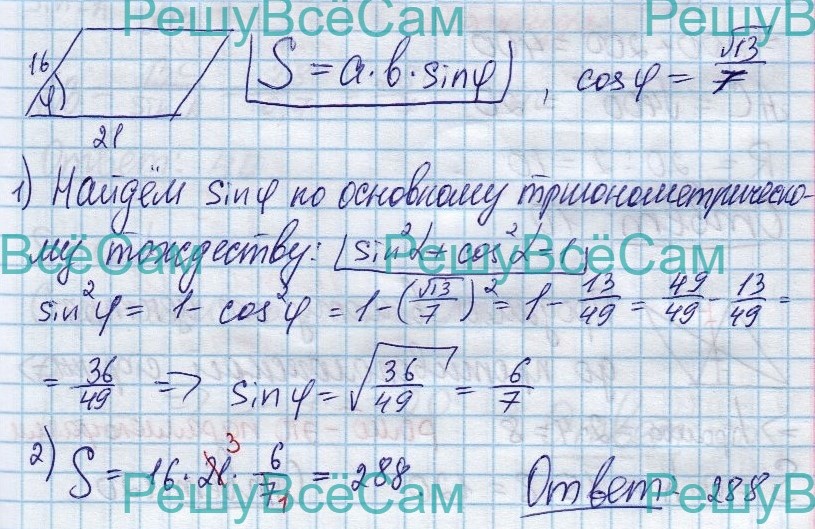 РешуВсёСам РешуВсёСам
16 φ 21
S = a·b·sinφ, cosφ = √13/7
1) Найдём sinφ по основному тригонометрическо-
му тождеству: sin²α + cos²α = 1
РешуВсёСам РешуВсёСам
sin²φ = 1 - cos²φ = 1 - (√13/7)² = 1 - 13/49 = 49/49 - 13/49 =
= 36/49 => sinφ = √36/49 = 6/7
2) S = 16 · 21 3 · 6/7 1 = 288. Ответ: 288.
РешуВсёСам РешуВсёСам